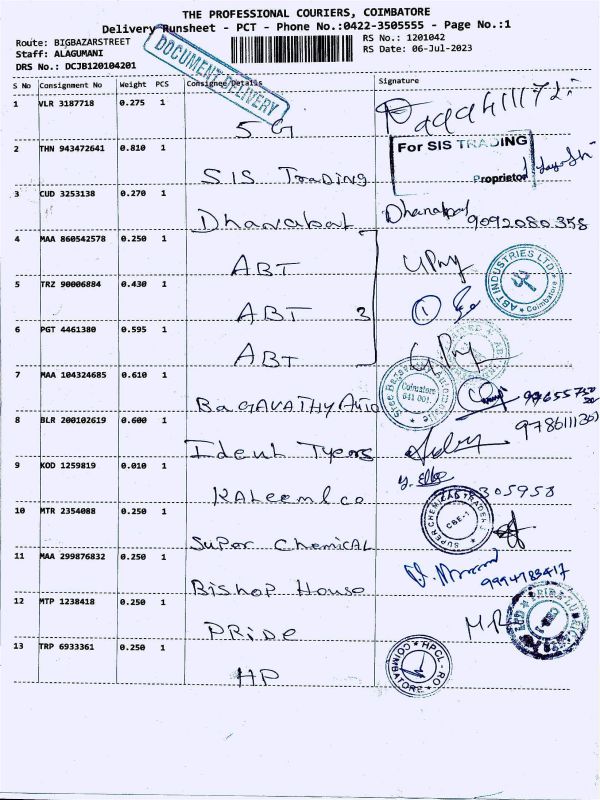 THE PROFESSIONAL COURIERS, COIMBATORE
Delivery Runsheet - PCT - Phone No.:0422-3505555 - Page No.:1
Route: BIGBAZARSTREET RS No.: 1201042
Staff: ALAGUMANI RS Date: 06-Jul-2023
DRS No.: DCJB120104201
DOCUMENT DELIVERY
S No Consignment No Weight PCS Consignee/Details Signature
1 VLR 3187718 0.275 1
5 G
2 THN 943472641 0.810 1 For SIS TRADING
SIS Trading Proprietor
3 CUD 3253138 0.270 1
Dhanabal Dhanabal 9092080358
4 MAA 860542578 0.250 1
ABT ABT INDUSTRIES LTD Coimbatore
5 TRZ 90006884 0.430 1
ABT 3 1
6 PGT 4461380 0.595 1
ABT
7 MAA 104324685 0.610 1 Coimbatore 641 001.
BaGAVATHY Auto
8 BLR 200102619 0.600 1
Ideul Tyers
9 KOD 1259819 0.010 1
KAleeml co 305958
10 MTR 2354088 0.250 1 SUPER CHEMICAL TRADERS CBE-1
Super ChemicAL
11 MAA 299876832 0.250 1
Bishop House
12 MTP 1238418 0.250 1
PRide M.R
13 TRP 6933361 0.250 1 HPCL-RO COIMBATORE
HP